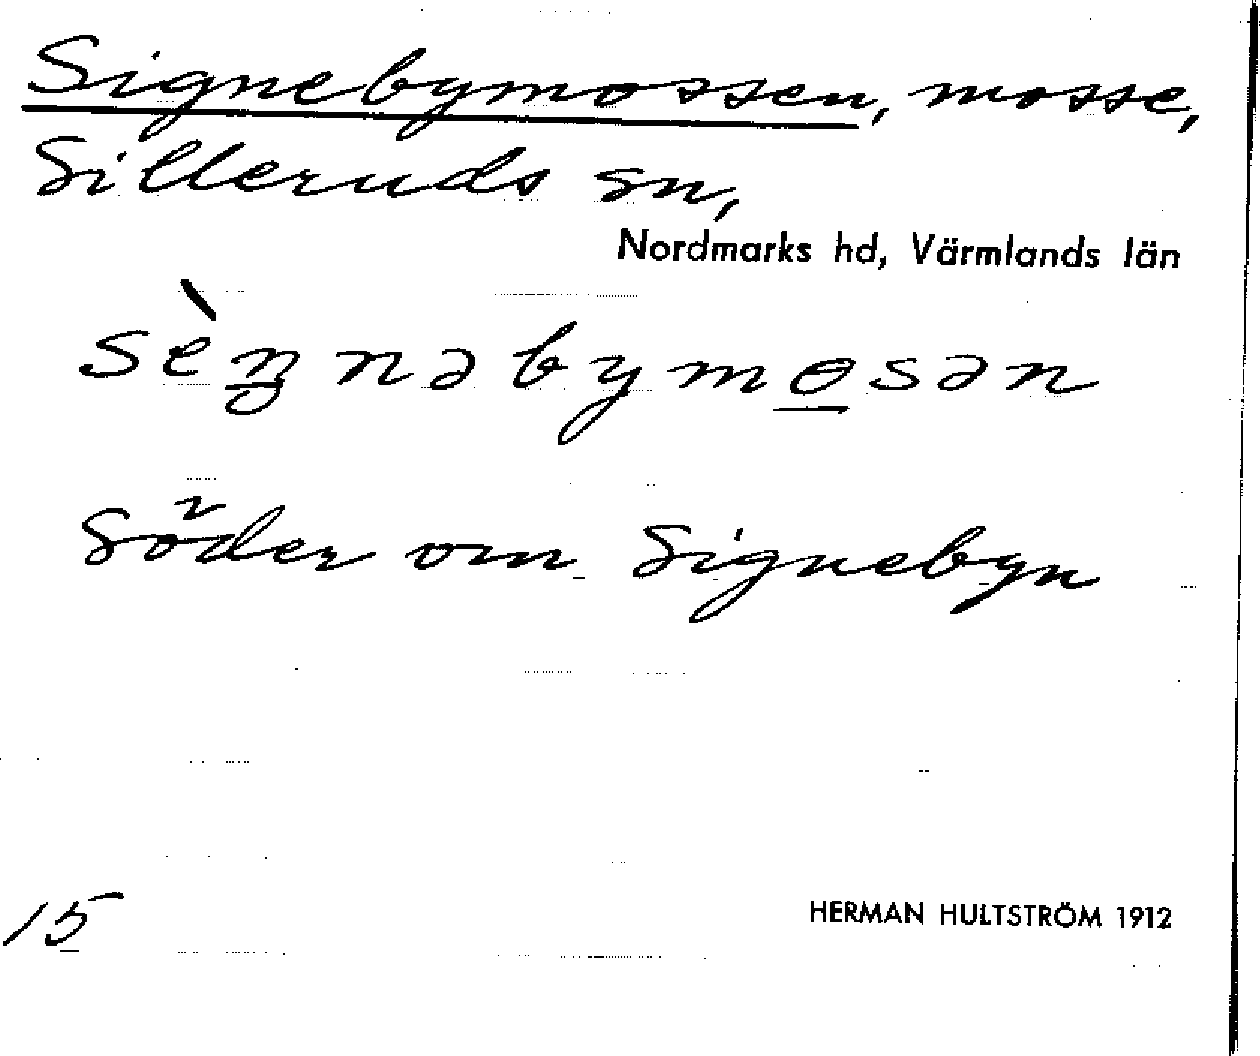 Signebymossen, mosse,
Silleruds sn,
Nordmarks hd, Värmlands län
sèŋnəbymosən
Söder om Signebyn
15
HERMAN HULTSTRÖM 1912